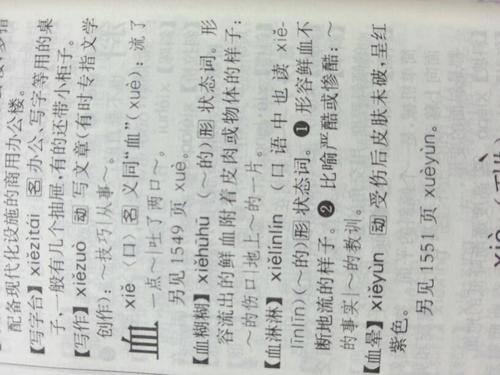 配备现代化设施的商用办公楼。
【写字台】xiězìtái 名 办公、写字等用的桌
子,一般有几个抽屉,有的还带小柜子。
【写作】xiězuò 动 写文章(有时专指文学
创作):~技巧|从事~。
血 xiě 〈口〉名 义同“血”(xuè):流了
一点~|吐了两口~。
另见 1549 页 xuè。
【血糊糊】xiěhūhū (~的)形 状态词。形
容流出的鲜血附着皮肉或物体的样子:
~的伤口|地上~的一片。
【血淋淋】xiělínlín (口语中也读 xiě-
līnlīn)(~的)形 状态词。❶ 形容鲜血不
断地流的样子。❷ 比喻严酷或惨酷:~
的事实|~的教训。
【血晕】xiěyùn 动 受伤后皮肤未破,呈红
紫色。
另见 1551 页 xuèyùn。